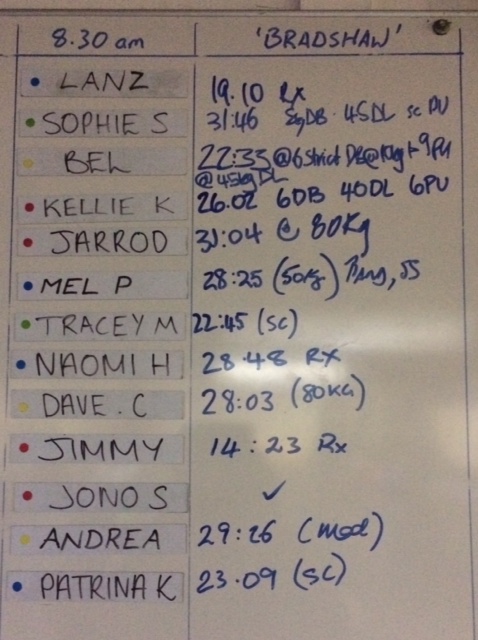 8.30 am 'BRADSHAW'
LANZ 19.10 Rx
SOPHIE S 31:46 DB 45DL sc PU
BEL 22:33 @6Strict DB@10kg + 9PU
@45kg DL
KELLIE K 26.02 6DB 40DL 6PU
JARROD 31:04 @ 80kg
MEL P 28:25 (50kg)
TRACEY M 22:45 (SC)
NAOMI H 28.48 RX
DAVE.C 28:03 (80KG)
JIMMY 14:23 Rx
JONO S ✓
ANDREA 29:26 (Mod)
PATRINA K 23.09 (SC)